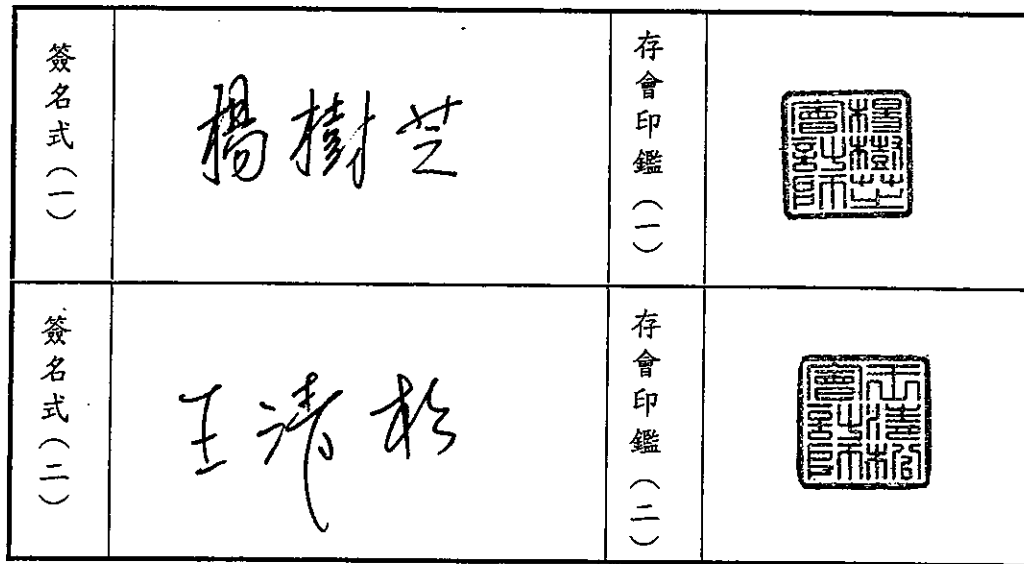 簽名式(一)
楊樹芝
存會印鑑(一)
楊樹芝會計師
簽名式(二)
王清松
存會印鑑(二)
王清松會計師